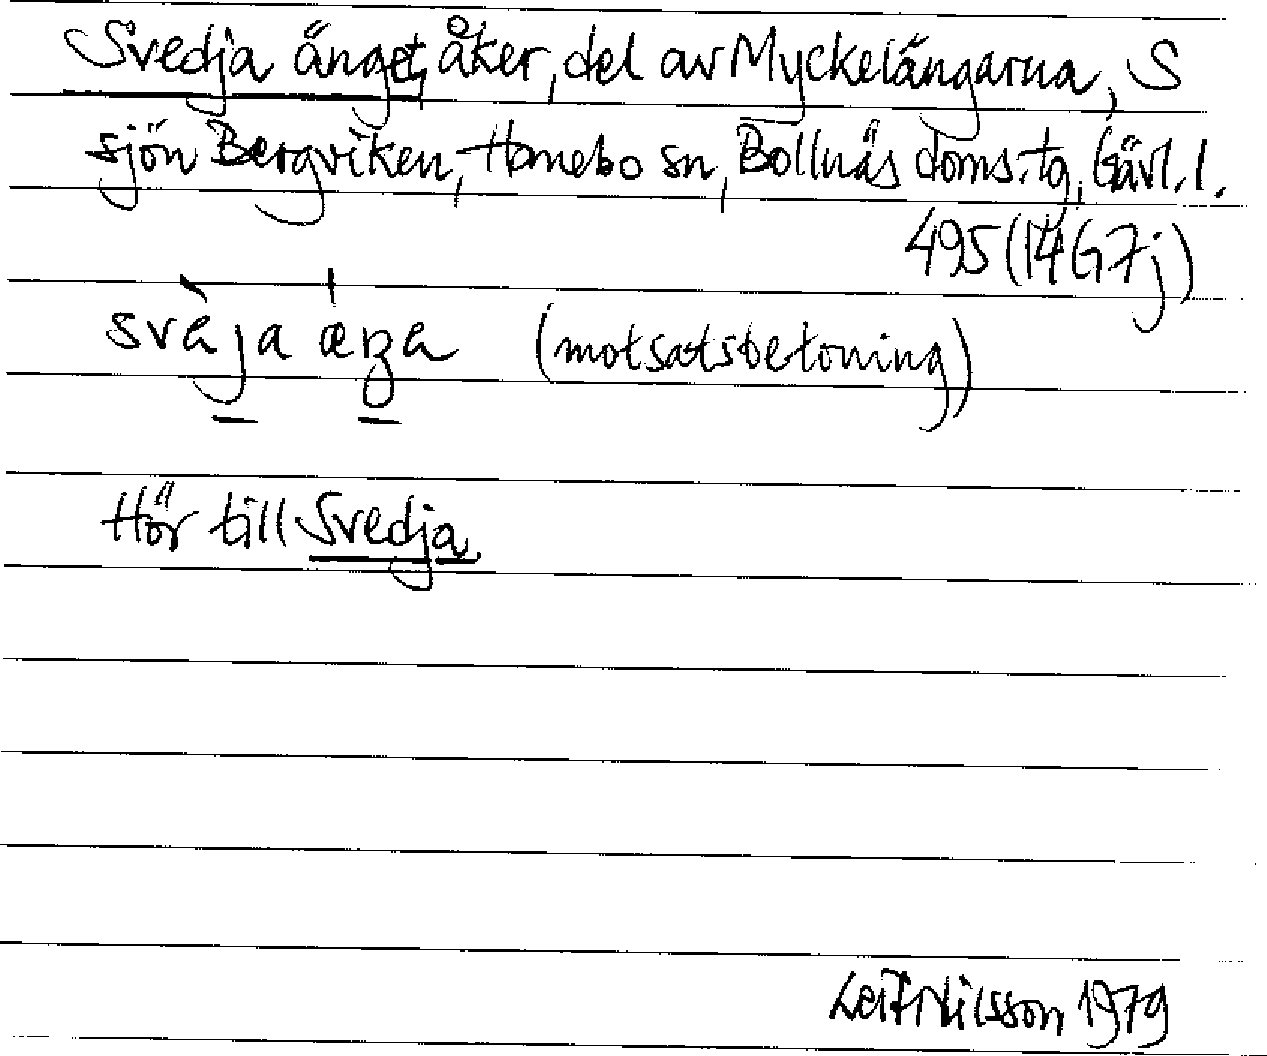 Svedja änget, åker, del av Myckelängarna, S
sjön Bergviken, Hanebo sn, Bollnäs doms.tg, Gävl. l.
495 (14G7j)
svàja æŋa (motsatsbetoning)
Hör till Svedja
Leif Nilsson 1979